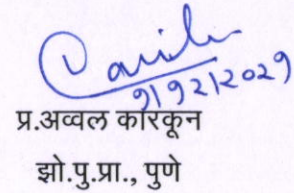 १/१२/२०२१
प्र.अव्वल कारकून
झो.पु.प्रा., पुणे